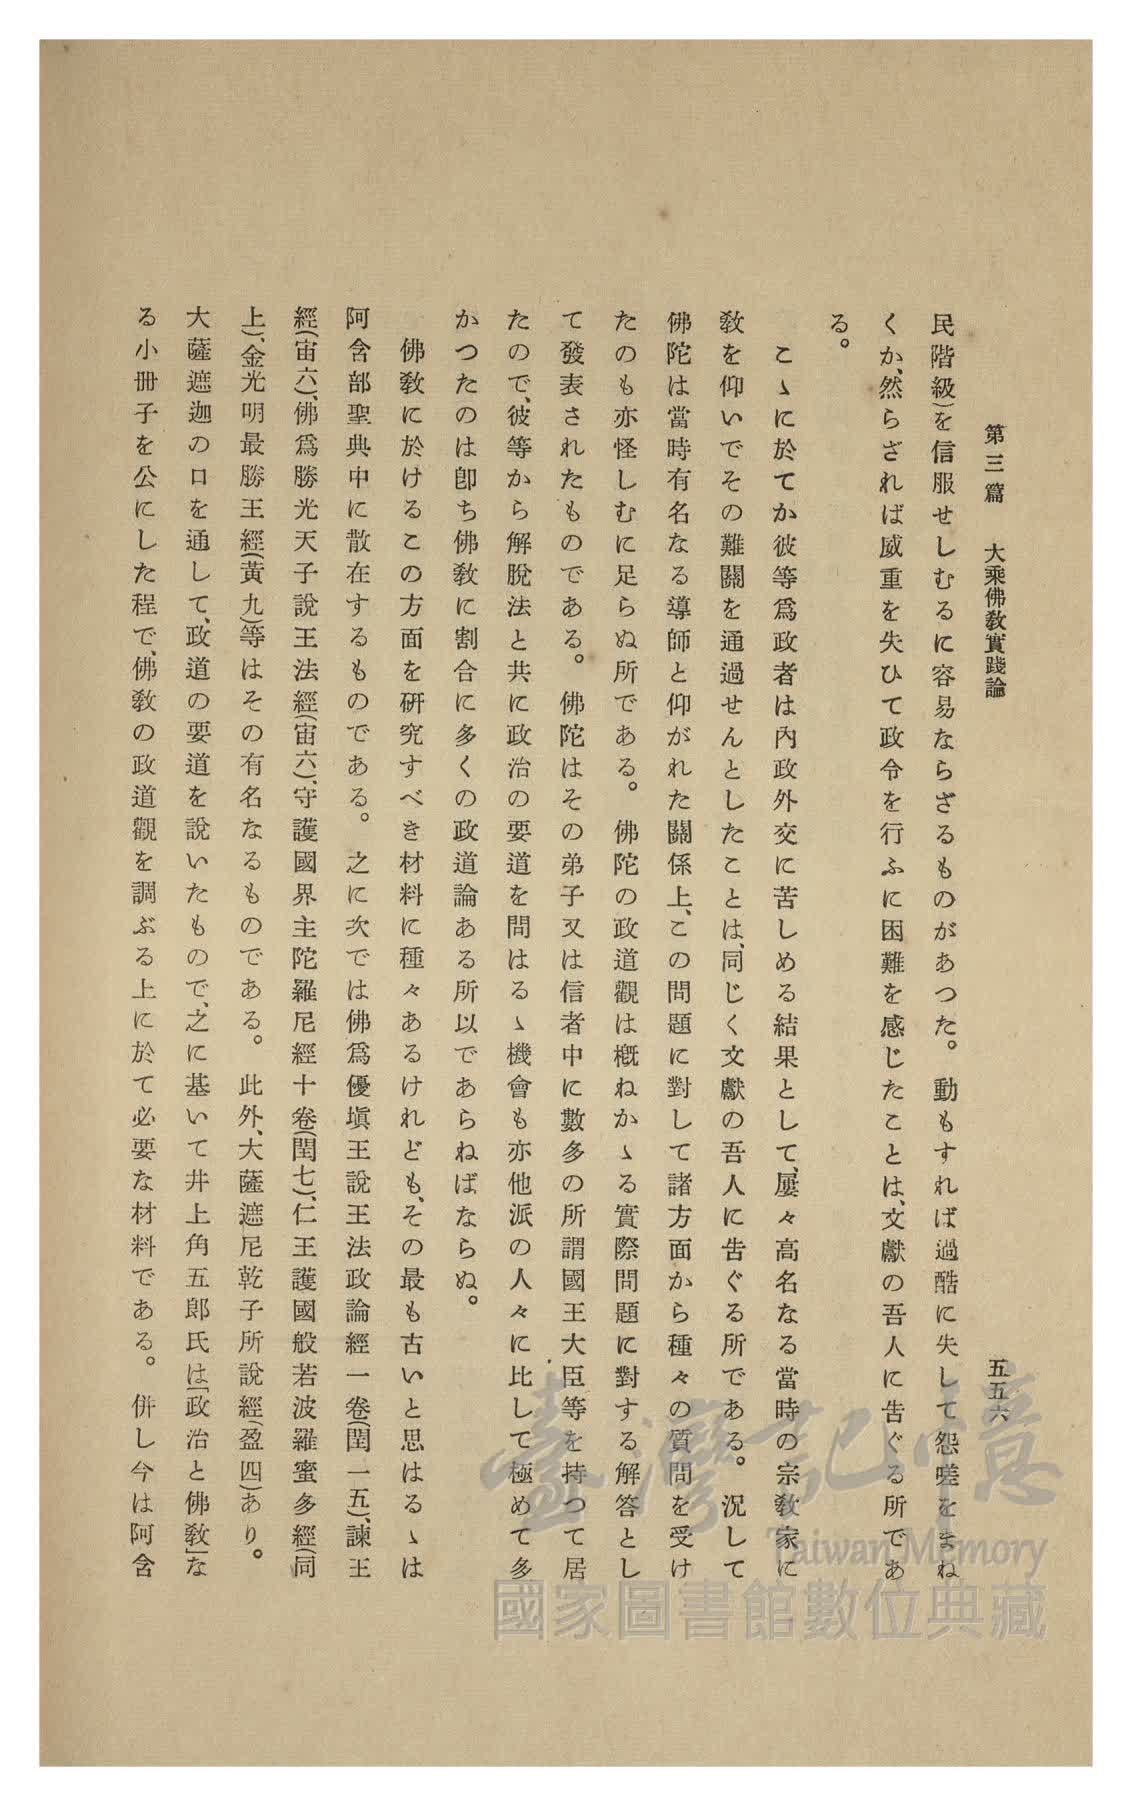 第三篇　大乘佛敎實踐論　五五六
民階級)を信服せしむるに容易ならざるものがあつた。動もすれば過酷に失して怨嗟をまね
くか、然らざれば威重を失ひて政令を行ふに困難を感じたことは、文獻の吾人に吿ぐる所であ
る。
こゝに於てか彼等爲政者は內政外交に苦しめる結果として、屢々高名なる當時の宗敎家に
敎を仰いでその難關を通過せんとしたことは、同じく文獻の吾人に吿ぐる所である。況して
佛陀は當時有名なる導師と仰がれた關係上、この問題に對して諸方面から種々の質問を受け
たのも亦怪しむに足らぬ所である。佛陀の政道觀は槪ねかゝる實際問題に對する解答とし
て發表されたものである。佛陀はその弟子又は信者中に數多の所謂國王大臣等を持つて居
たので、彼等から解脫法と共に政治の要道を問はるゝ機會も亦他派の人々に比して極めて多
かつたのは卽ち佛敎に割合に多くの政道論ある所以であらねばならぬ。
佛敎に於けるこの方面を研究すべき材料に種々あるけれども、その最も古いと思はるゝは
阿含部聖典中に散在するものである。之に次では佛爲優塡王說王法政論經一卷(閏一五)、諫王
經(宙六)、佛爲勝光天子說王法經(宙六)、守護國界主陀羅尼經十卷(閏七)、仁王護國般若波羅蜜多經(同
上)、金光明最勝王經(黃九)等はその有名なるものである。此外、大薩遮尼乾子所說經(盈四)あり。
大薩遮迦の口を通して、政道の要道を說いたもので、之に基いて井上角五郎氏は「政治と佛敎」な
る小冊子を公にした程で、佛敎の政道觀を調ぶる上に於て必要な材料である。併し今は阿含
臺灣記憶
Taiwan Memory
國家圖書館數位典藏